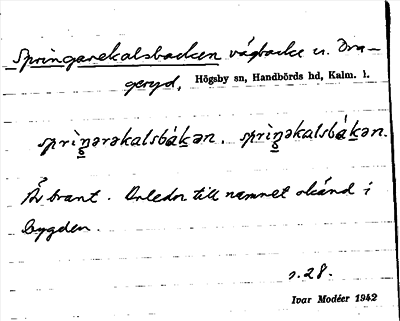 Springarekalsbacken vägbacke n. Dra-
geryd, Högsby sn, Handbörds hd, Kalm. l.
sprìŋ̱ərəkalsbákən. sprìŋ̱əkalsbákən.
Är brant. Anledn till namnet okänd i
bygden.
s. 28.
Ivar Modéer 1942